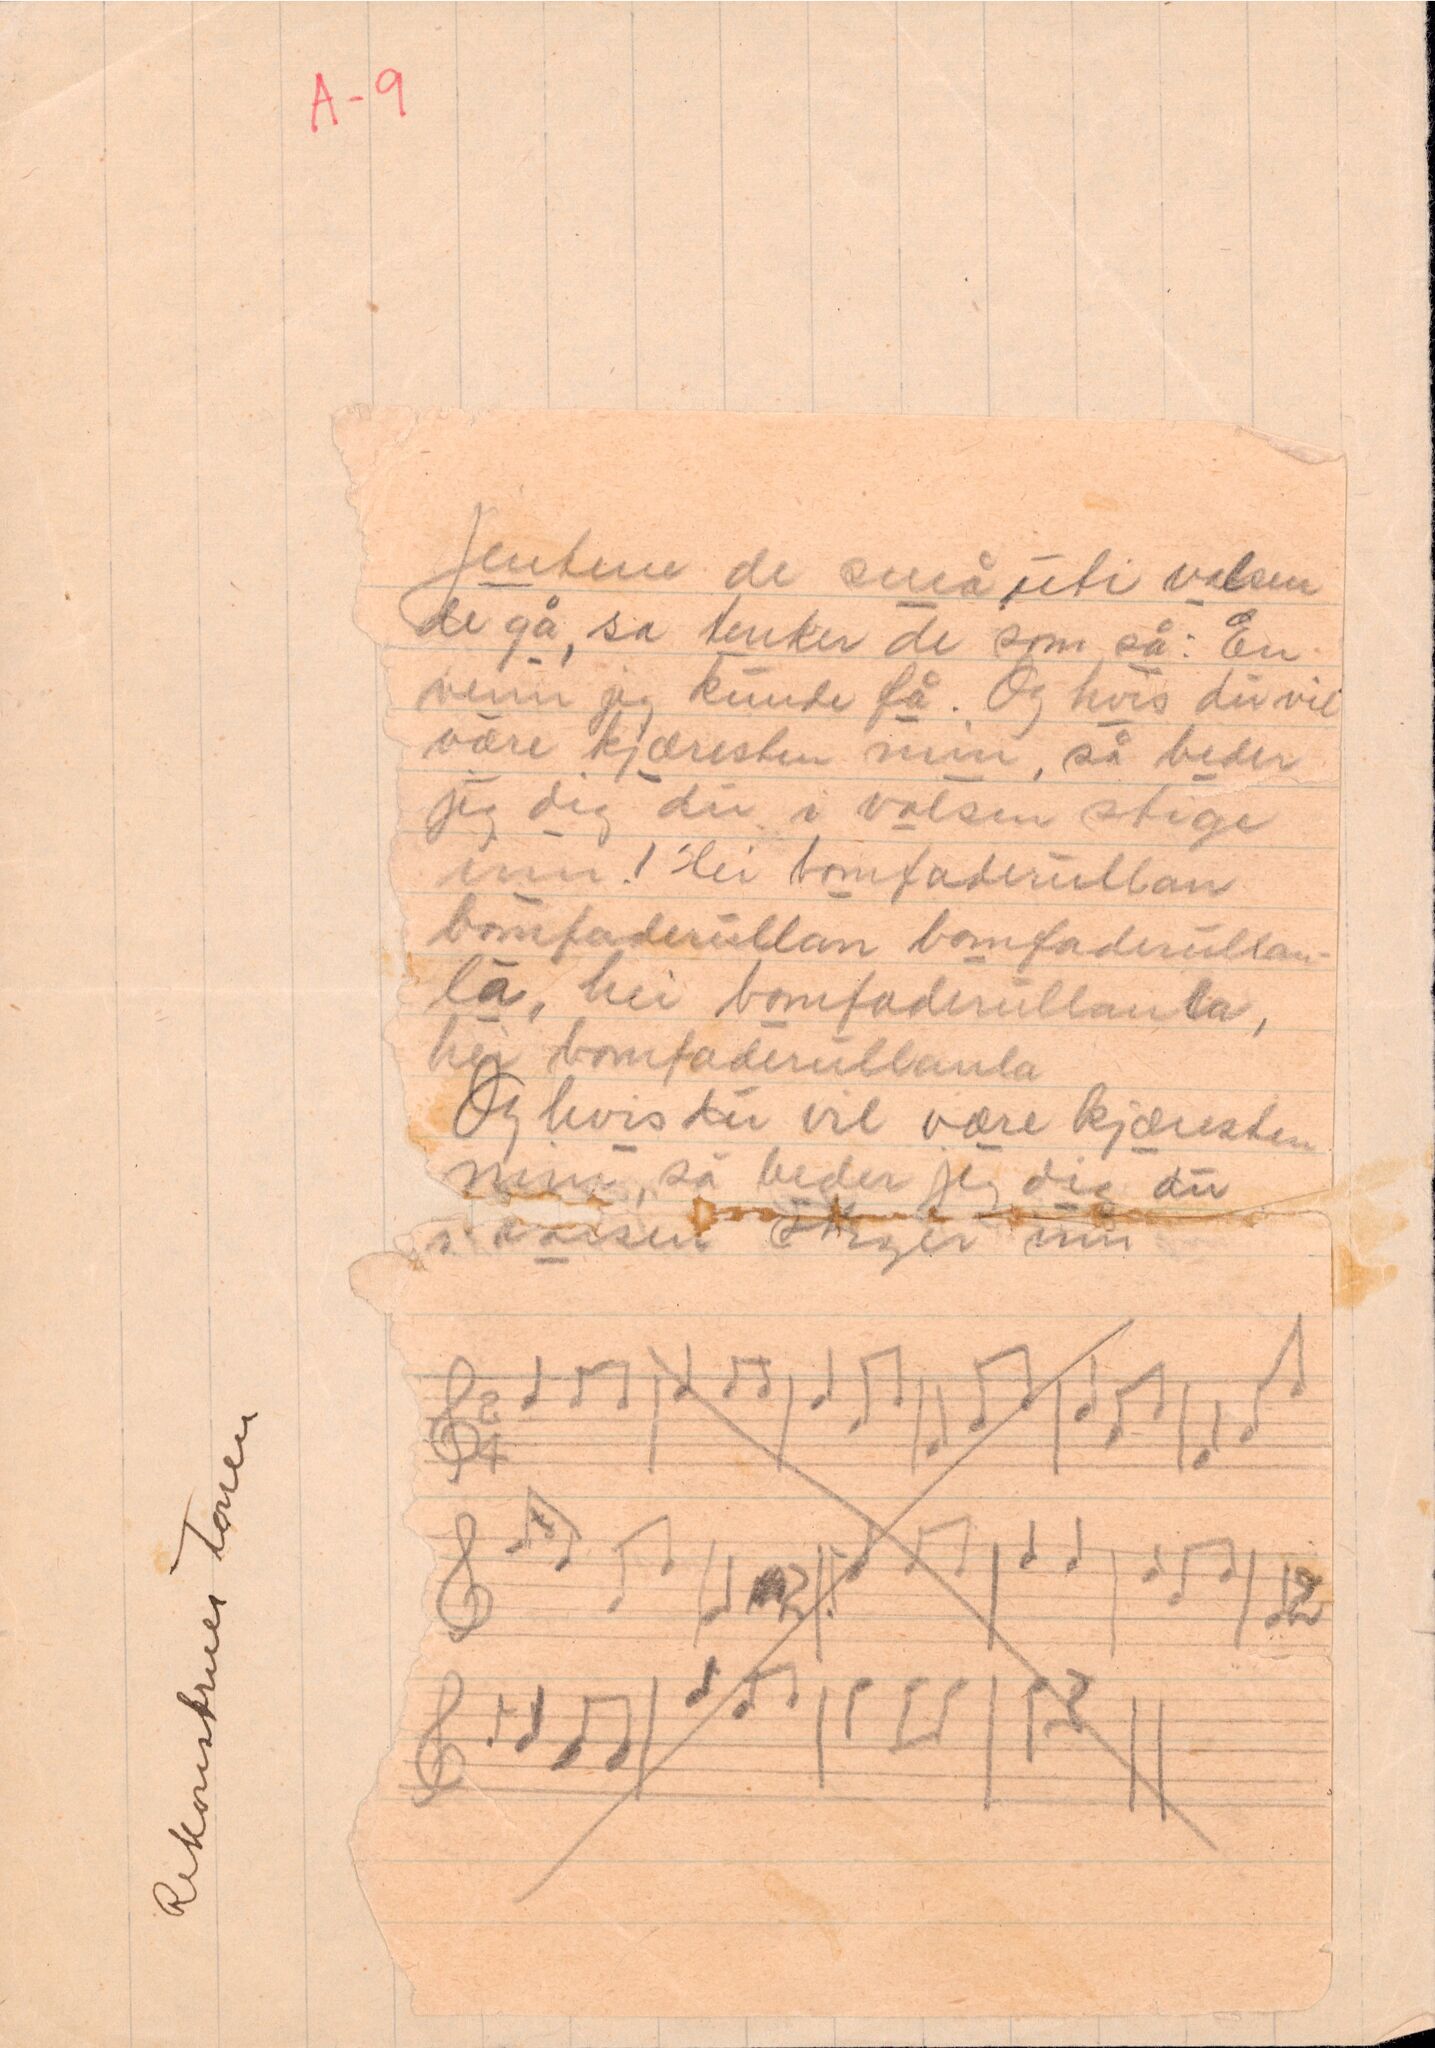 A-9
Jentene de små, uti valsen
de gå, sa tenker de som så: En
venn jeg kunde få. Og hvis du vil
være kjæresten min, så beder
jeg dig du i valsen stige
inn! Hei bomfaderullan
bomfaderullan bomfaderullan-
la, hei bomfaderullanla,
hei bomfaderullanla
Og hvis du vil være kjæresten
min, så beder jeg dig du
i valsen stiger inn
2
4
Rekonstruer tonen